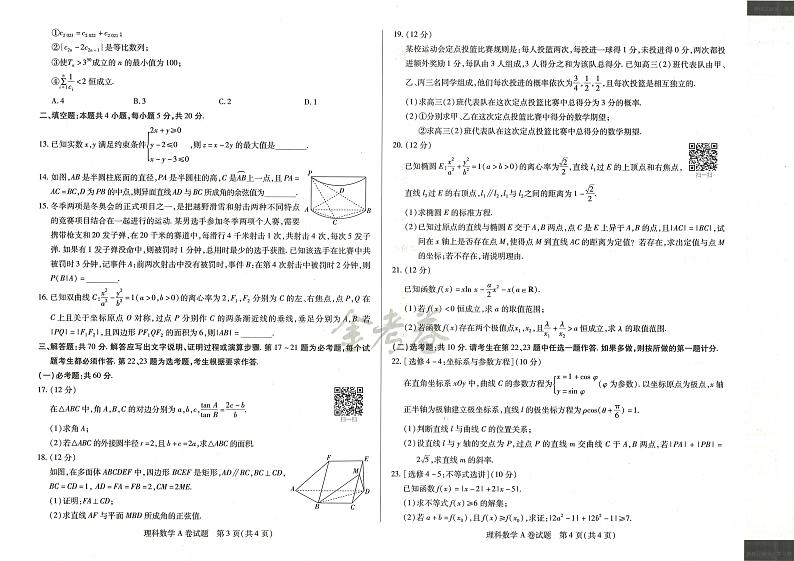 ①c₂₀₂₃ = c₂₀₂₂ + c₂₀₂₁;
②{c₂ₙ − 2c₂ₙ₋₁} 是等比数列;
③使Tₙ > 3⁵⁰成立的 n 的最小值为 100;
④∑ᵢ₌₁ⁿ 1/cᵢ < 2 恒成立.
A. 4 B. 3 C. 2 D. 1
二、填空题:本题共 4 小题,每小题 5 分,共 20 分.
13. 已知实数 x,y 满足约束条件{2x + y ≥ 0 y − 2 ≤ 0 x − y − 3 ≤ 0 ,则 z = x − 2y 的最大值是
14. 如图,AB 是半圆柱底面的直径,PA 是半圆柱的高,C 是AB上一点,且 PA =
AC = BC,D 为 PB 的中点,则异面直线 AD 与 BC 所成角的余弦值为
P
D
A
B
C
15. 冬季两项是冬奥会的正式项目之一,是把越野滑雪和射击两种不同特点
的竞赛项目结合在一起进行的运动. 某男选手参加冬季两项个人赛,需要
携带枪支和 20 发子弹,在 20 千米的赛道中,每滑行 4 千米射击 1 次,共射击 4 次,每次 5 发子
弹. 如果有 1 发子弹没命中,则被罚时 1 分钟,总用时最少的选手获胜. 已知该选手在比赛中共
被罚时 3 分钟,记事件 A:前两次射击中没有被罚时,事件 B:在第 4 次射击中被罚时 2 分钟,则
P(B|A) =
16. 已知双曲线 C: x²/a² − y²/b² = 1(a > 0,b > 0)的离心率为 2,F₁,F₂ 分别为 C 的左、右焦点,点 P,Q 在
C 上且关于坐标原点 O 对称,过点 P 分别作 C 的两条渐近线的垂线,垂足分别为 A,B. 若
|PQ| = |F₁F₂|,且四边形 PF₁QF₂ 的面积为 6,则|AB| =
三、解答题:共 70 分. 解答应写出文字说明、证明过程或演算步骤. 第 17 ~ 21 题为必考题,每个试
题考生都必须作答. 第 22、23 题为选考题,考生根据要求作答.
(一)必考题:共 60 分.
17. (12 分)
在△ABC 中,角 A,B,C 的对边分别为 a,b,c, tan A/tan B = (2c − b)/b.
(1)求角 A;
(2)若△ABC 的外接圆半径 r = 2,且 b + c = 2a,求△ABC 的面积.
18. (12 分)
如图,在多面体 ABCDEF 中,四边形 BCEF 是矩形,AD∥BC,BC⊥CD,
BC = CD = 1,AD = FA = FB = 2,CM = 2ME.
(1)证明:FA⊥CD;
(2)求直线 AF 与平面 MBD 所成角的正弦值.
F
E
M
A
D
B
C
理科数学 A 卷试题 第 3 页(共 4 页)
19. (12 分)
某校运动会定点投篮比赛规则是:每人投篮两次,每投进一球得 1 分,未投进得 0 分,两次都投
进额外奖励 1 分,每队由 3 人组成,3 人得分之和为该队总得分. 已知高三(2)班代表队由甲、
乙、丙三名同学组成,他们每次投进的概率依次为 3/4, 1/2, 1/2,且每次投篮是相互独立的.
(1)求高三(2)班代表队在这次定点投篮比赛中总得分为 3 分的概率.
(2)①分别求甲、乙在这次定点投篮比赛中得分的数学期望;
②求高三(2)班代表队在这次定点投篮比赛中总得分的数学期望.
20. (12 分)
已知椭圆 E: x²/a² + y²/b² = 1(a > b > 0)的离心率为 √2/2,直线 l₁ 过 E 的上顶点和右焦点,
扫一扫
直线 l₂ 过 E 的右顶点,l₁∥l₂,l₁ 与 l₂ 之间的距离为 1 − √2/2.
(1)求椭圆 E 的标准方程.
(2)已知过原点的直线与椭圆 E 交于 A,B 两点,点 C 是 E 上异于 A,B 的点,且|AC| = |BC|,试
问在 x 轴上是否存在点 M,使得点 M 到直线 AC 的距离为定值? 若存在,求出定值与点 M
的坐标;若不存在,请说明理由.
21. (12 分)
已知函数 f(x) = xln x − a/2 x² − x(a∈R).
扫一扫
(1)若 f(x) < 0 恒成立,求 a 的取值范围;
(2)若函数 f(x) 存在两个极值点x₁,x₂,且 λ/x₁ + λ/x₂ > a 恒成立,求 λ 的取值范围.
(二)选考题:共 10 分. 请考生在第 22、23 题中任选一题作答. 如果多做,则按所做的第一题计分.
22. [选修 4 − 4:坐标系与参数方程](10 分)
在直角坐标系 xOy 中,曲线 C 的参数方程为{x = 1 + cos φ y = sin φ (φ 为参数). 以坐标原点为极点,x 轴
正半轴为极轴建立极坐标系,直线 l 的极坐标方程为 ρcos(θ + π/6) = 1.
(1)判断直线 l 与曲线 C 的位置关系;
(2)设直线 l 与 y 轴的交点为 P,过点 P 的直线 m 交曲线 C 于 A,B 两点,若|PA| + |PB| =
2√3,求直线 m 的斜率.
23. [选修 4 − 5:不等式选讲](10 分)
已知函数 f(x) = |x − 2| + 2|x − 5|.
(1)求不等式 f(x) ≥ 6 的解集;
(2)若 a + b = f(x₀),且 f(x) ≥ f(x₀),求证:|2a² − 1| + |2b² − 1| ≥ 7.
理科数学 A 卷试题 第 4 页(共 4 页)
金考卷